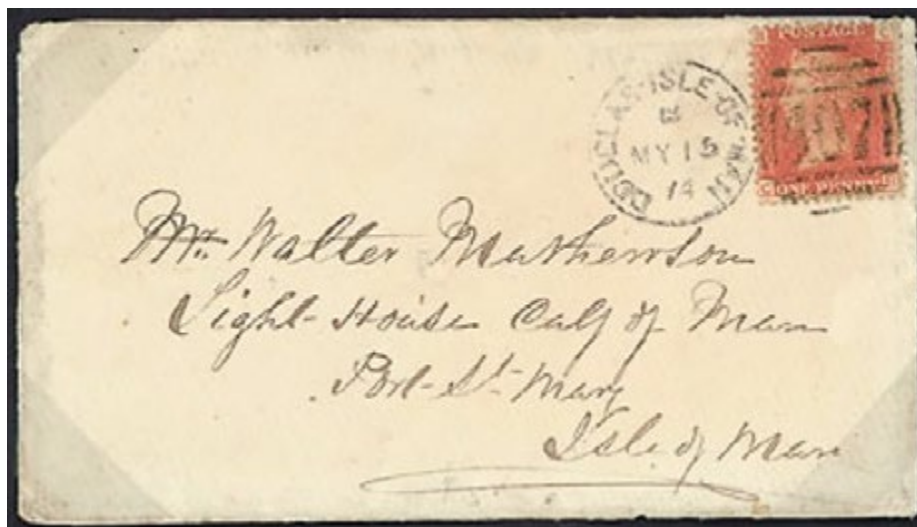 POSTAGE
DOUGLAS·ISLE·OF·MAN
B
MY 15
74
ONE PENNY
Mr. Walter Mathewson
Light-House Calf of Man
Port-St-Mary
Isle of Man